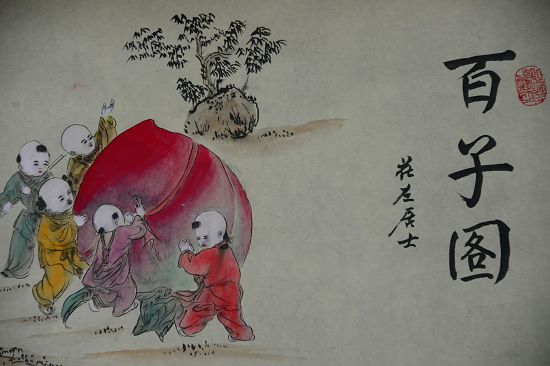 百子图
花左居士